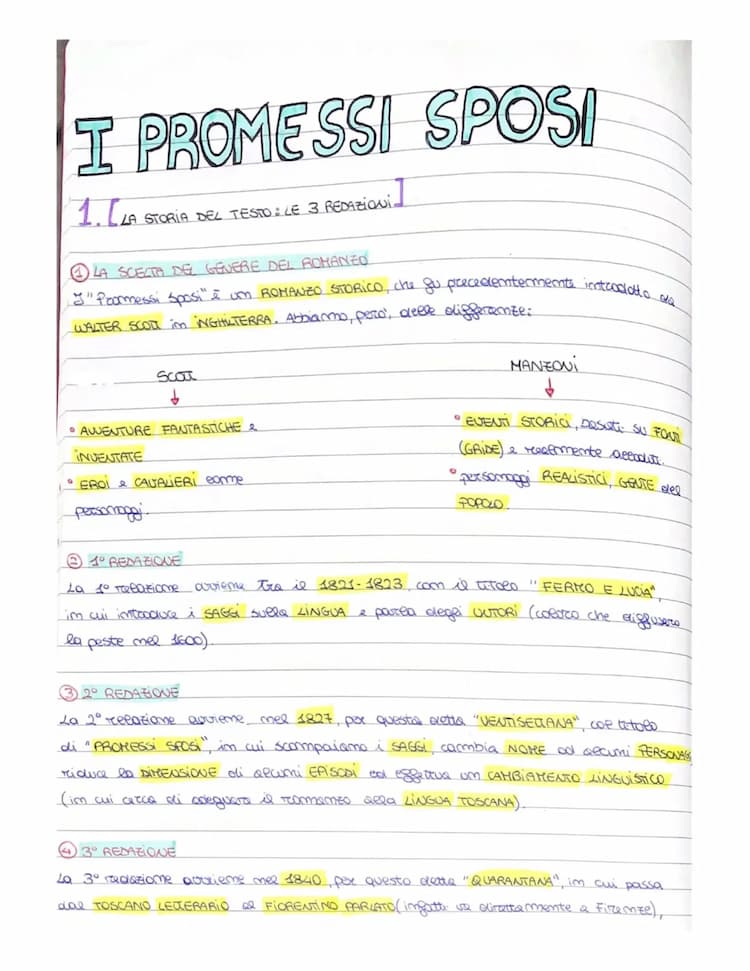 I PROMESSI SPOSI
1. [LA STORIA DEL TESTO: LE 3 REDAZIONI]
① LA SCELTA DEL GENERE DEL ROMANZO
I "Promessi Sposi" è un ROMANZO STORICO, che fu precedentemente introdotto da
WALTER SCOTT in INGHILTERRA. Abbiamo, però, delle differenze:
SCOTT
↓
• AVVENTURE FANTASTICHE e
INVENTATE
• EROI e CAVALIERI come
personaggi.
MANZONI
↓
• EVENTI STORICI, basati su FONTI
(GRIDE) e realmente accaduti.
• personaggi REALISTICI, GENTE del
POPOLO.
② 1° REDAZIONE
La 1° redazione avviene tra il 1821-1823, con il titolo "FERMO E LUCIA",
in cui introduce i SAGGI sulla LINGUA e parla degli UNTORI (coloro che diffusero
la peste nel 1600).
③ 2° REDAZIONE
La 2° redazione avviene nel 1827, per questo detta "VENTISETTANA", col titolo
di "PROMESSI SPOSI", in cui scompaiono i SAGGI, cambia NOME ad alcuni PERSONAGGI
riduce la DIMENSIONE di alcuni EPISODI ed effettua un CAMBIAMENTO LINGUISTICO
(in cui cerca di adeguare il romanzo alla LINGUA TOSCANA).
④ 3° REDAZIONE
La 3° redazione avviene nel 1840, per questo detta "QUARANTANA", in cui passa
dal TOSCANO LETTERARIO al FIORENTINO PARLATO (infatti va direttamente a Firenze),